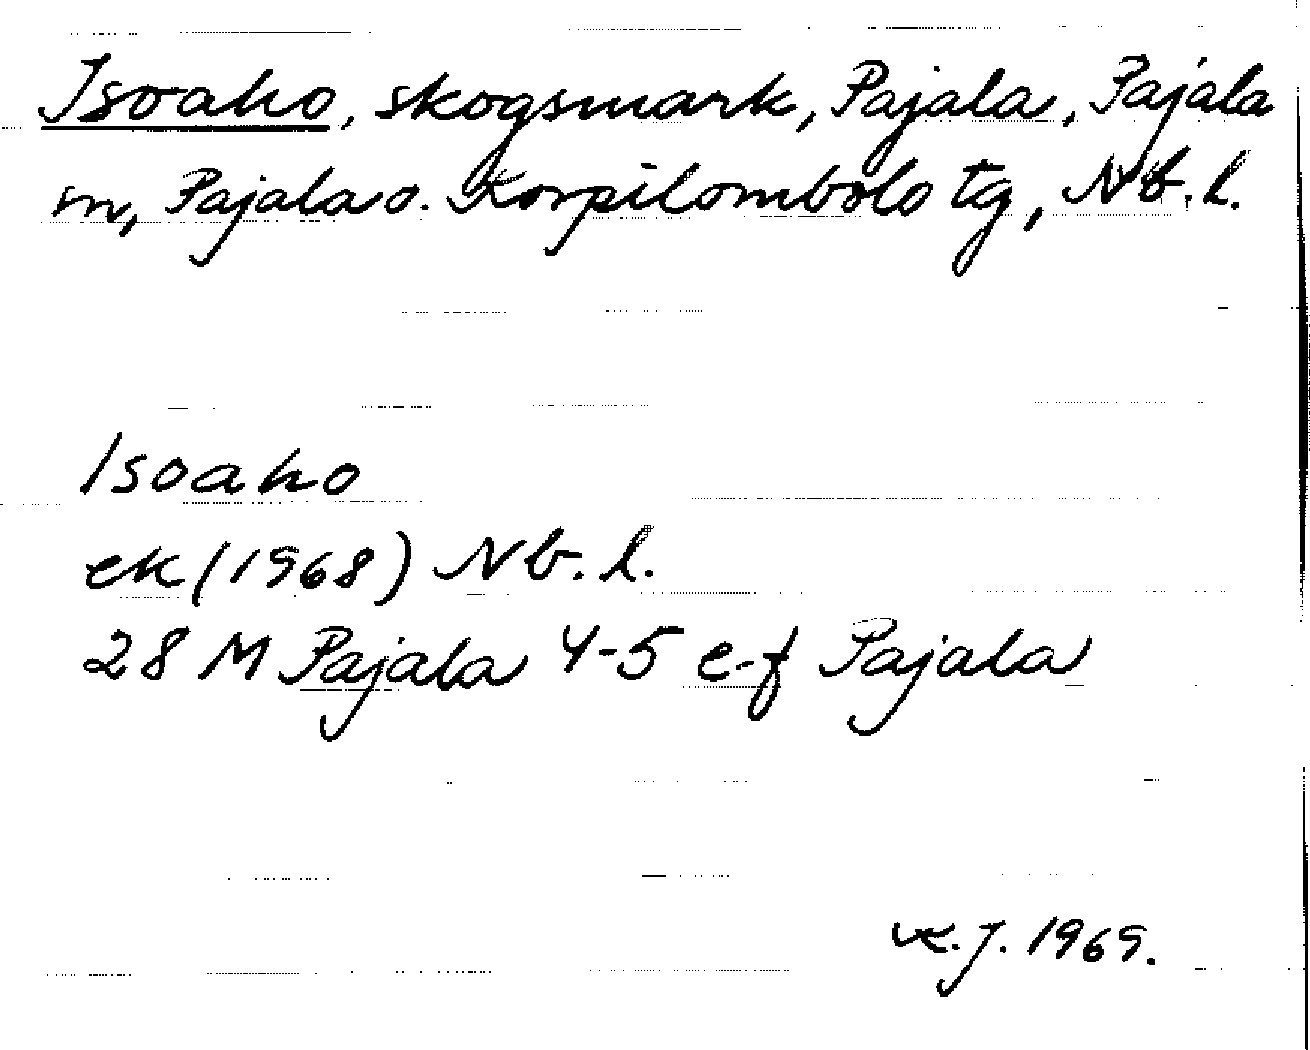 Isoaho, skogsmark, Pajala, Pajala
sn, Pajala o. Korpilombolo tg, Nb. l.
Isoaho
ek (1968) Nb. l.
28 M Pajala 4-5 e-f Pajala
1969.